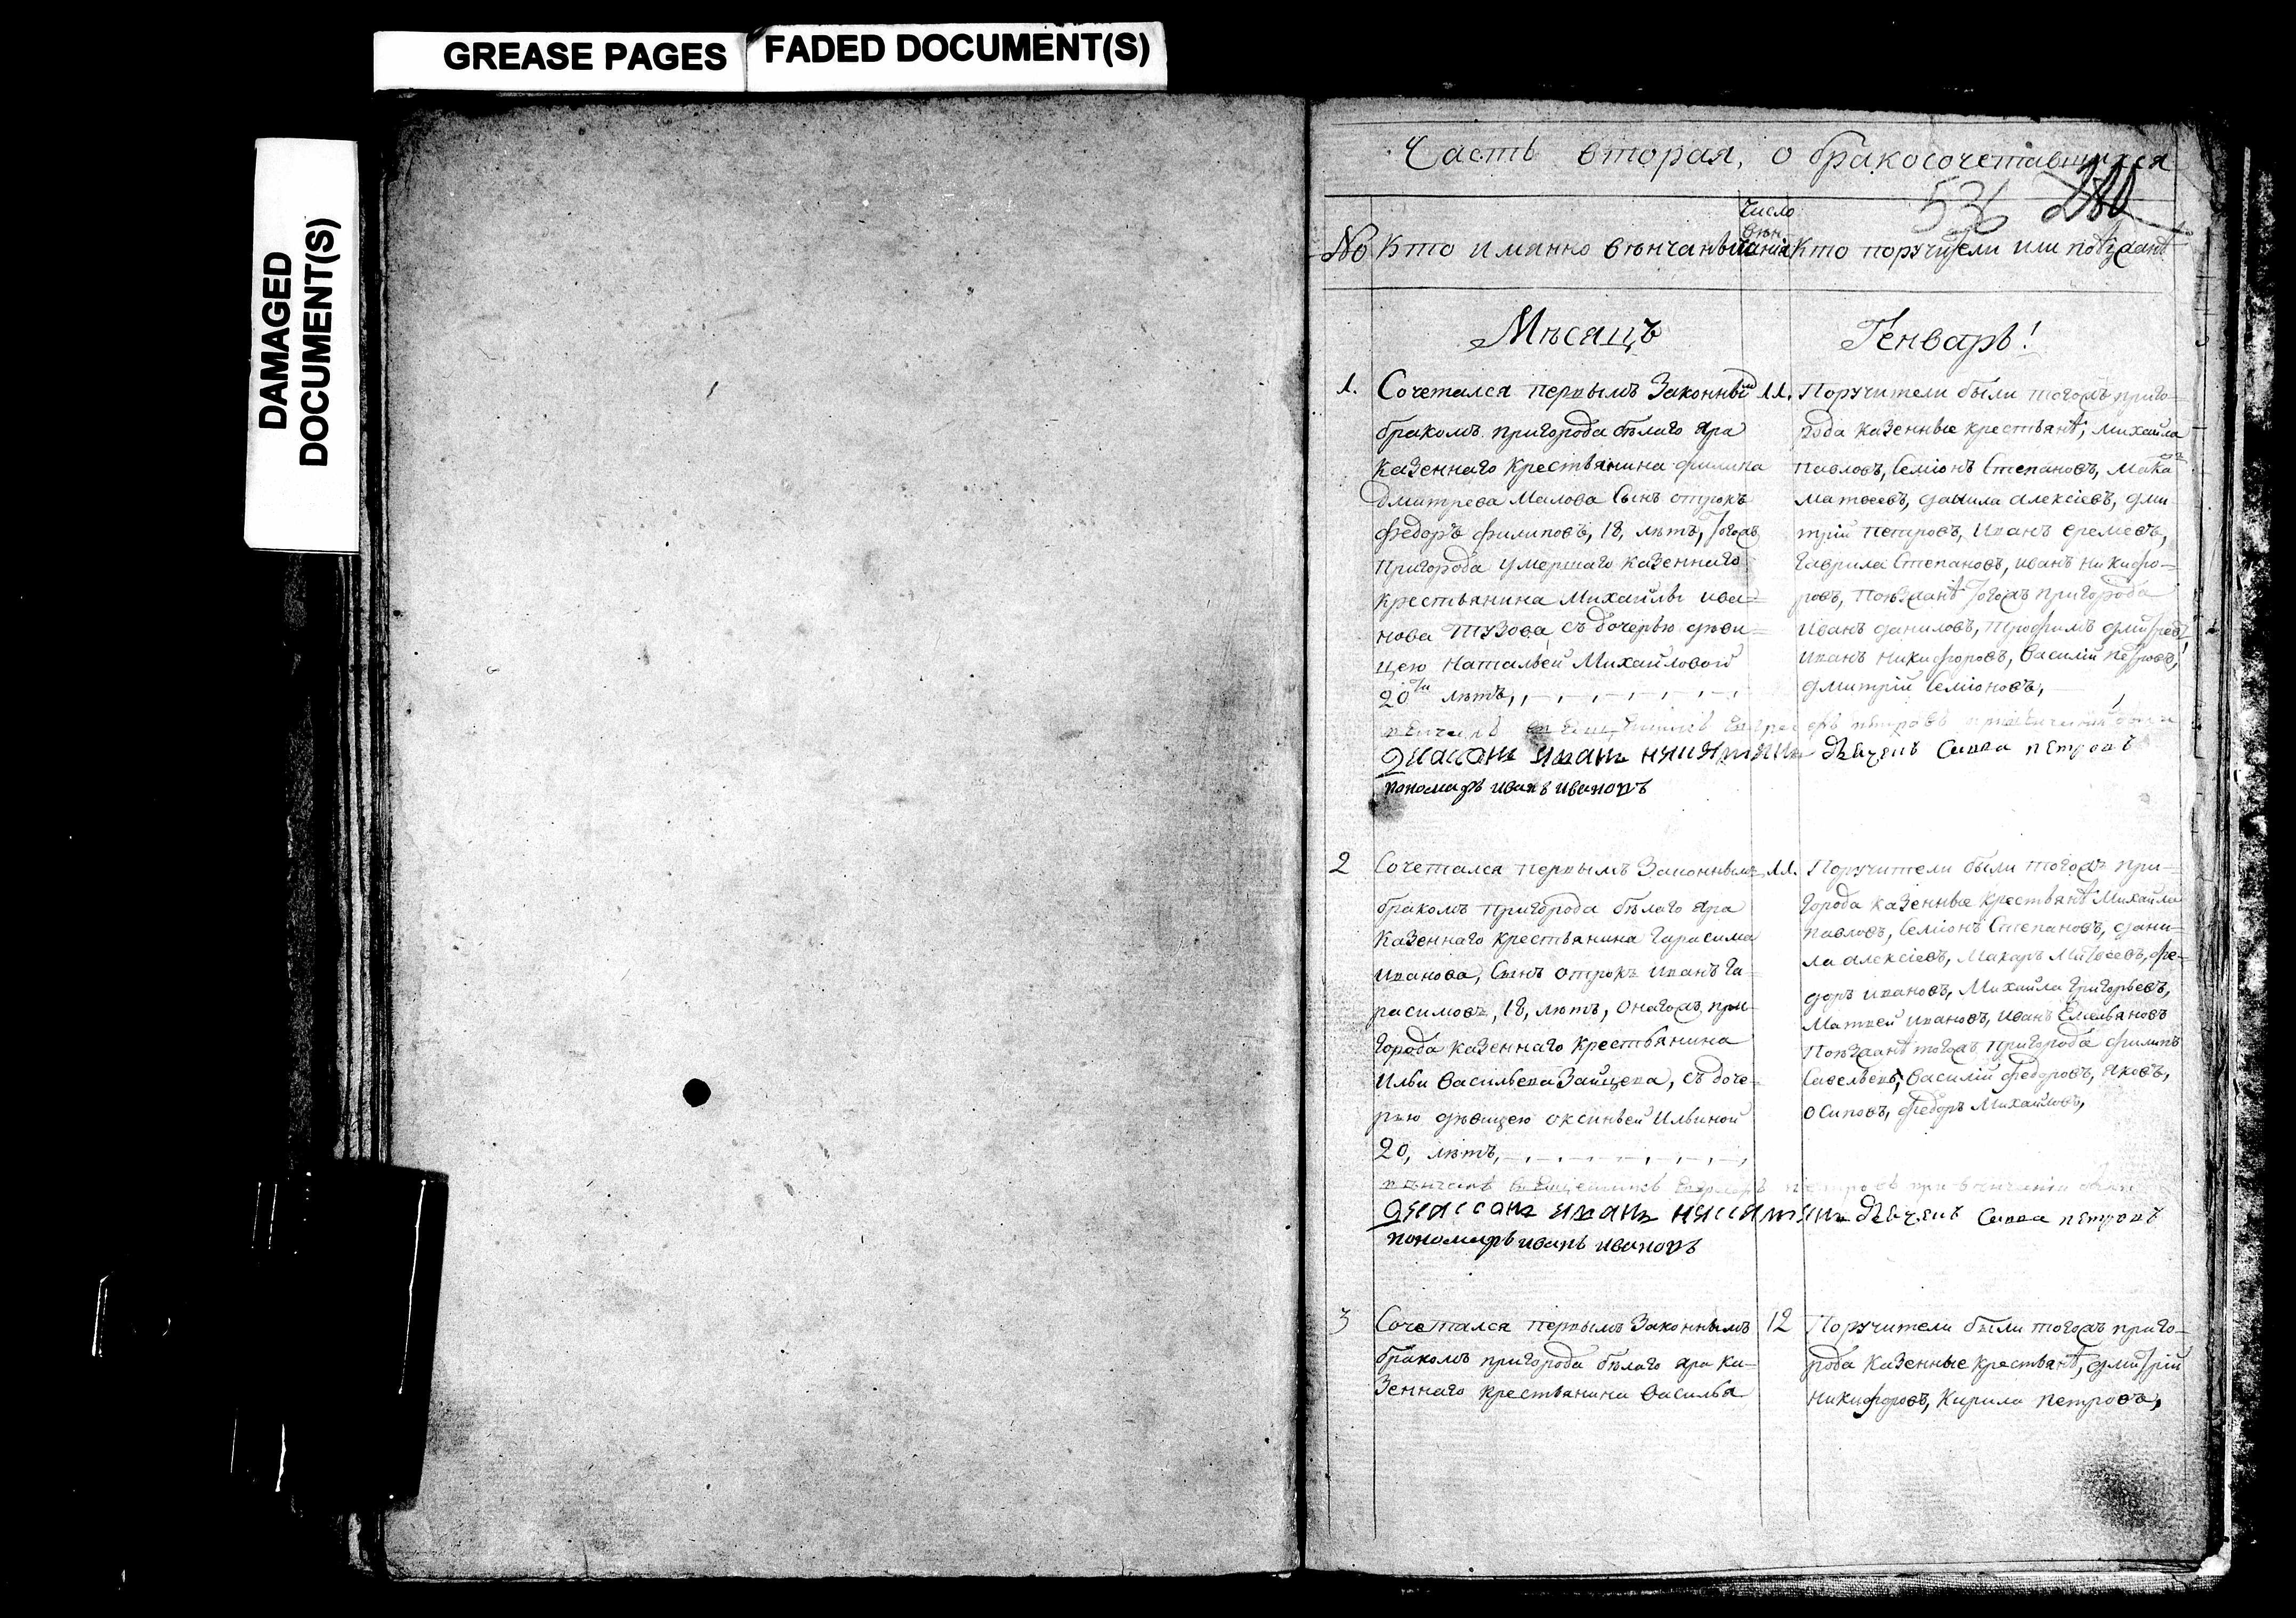 GREASE PAGES
FADED DOCUMENT(S)
DAMAGED
DOCUMENT(S)
Часть вторая, о бракосочетавшихся
536
№ Кто имянно венчаны
Число венчания
Кто поручители или поѣзжанѣ
Мѣсяцъ Генварь!
1. Сочетался первымъ Законным
бракомъ пригорода бѣлаго Яра
казеннаго крестьянина филипа
дмитрева Малова Сынъ отрокъ
федоръ филиповъ, 18, лѣтъ, тогожъ
пригорода умершаго казеннаго
крестьянина Михайлы ива=
нова Тузова, съ дочерью деви=
цею натальей Михайловой
20ти лѣтъ,
11. Поручители были тогожъ приго=
рода казенные крестьянѣ, михайла
павловъ, Семіонъ Степановъ, мака
матвеевъ, данила алексіевъ, дми-
трий петровъ, иванъ еремеевъ,
гаврила Степановъ, иванъ никифо=
ровъ, поѣзжанѣ тогожъ пригорода
иванъ даниловъ, трофимъ
иванъ никифоровъ, василій петровъ,
дмитрій Семіоновъ,
дьячекъ Савва петровъ
пономарь иванъ ивановъ
2 Сочетался первымъ Законнымъ
бракомъ пригорода бѣлаго Яра
казеннаго крестьянина гарасима
иванова, Сынъ отрокъ иванъ га
расимовъ, 18, лѣтъ, онагожъ при-
города казеннаго крестьянина
ильи васильева Зайцева, съ доче=
рью девицею оксиньей ильиной
20, лѣтъ,
11. Поручители были тогожъ при=
города казенные крестьянѣ Михайла
павловъ, Семіонъ Степановъ, дани=
ла алексіевъ, Макаръ Матвеевъ, фе=
доръ ивановъ, Михайла григорьевъ,
Матвей ивановъ, иванъ Емельяновъ
поѣзжанѣ тогожъ пригорода филипъ
Савельевъ, василій федоровъ, яковъ,
осиповъ, федоръ Михайловъ,
дьячекъ Савва петровъ
пономарь иванъ ивановъ
3 Сочетался первымъ Законнымъ
бракомъ пригорода бѣлаго яра ка=
зеннаго крестьянина василья
12 Поручители были тогожъ приго=
рода казенные крестьянѣ, дмитрій
никифоровъ, кирила петровъ,